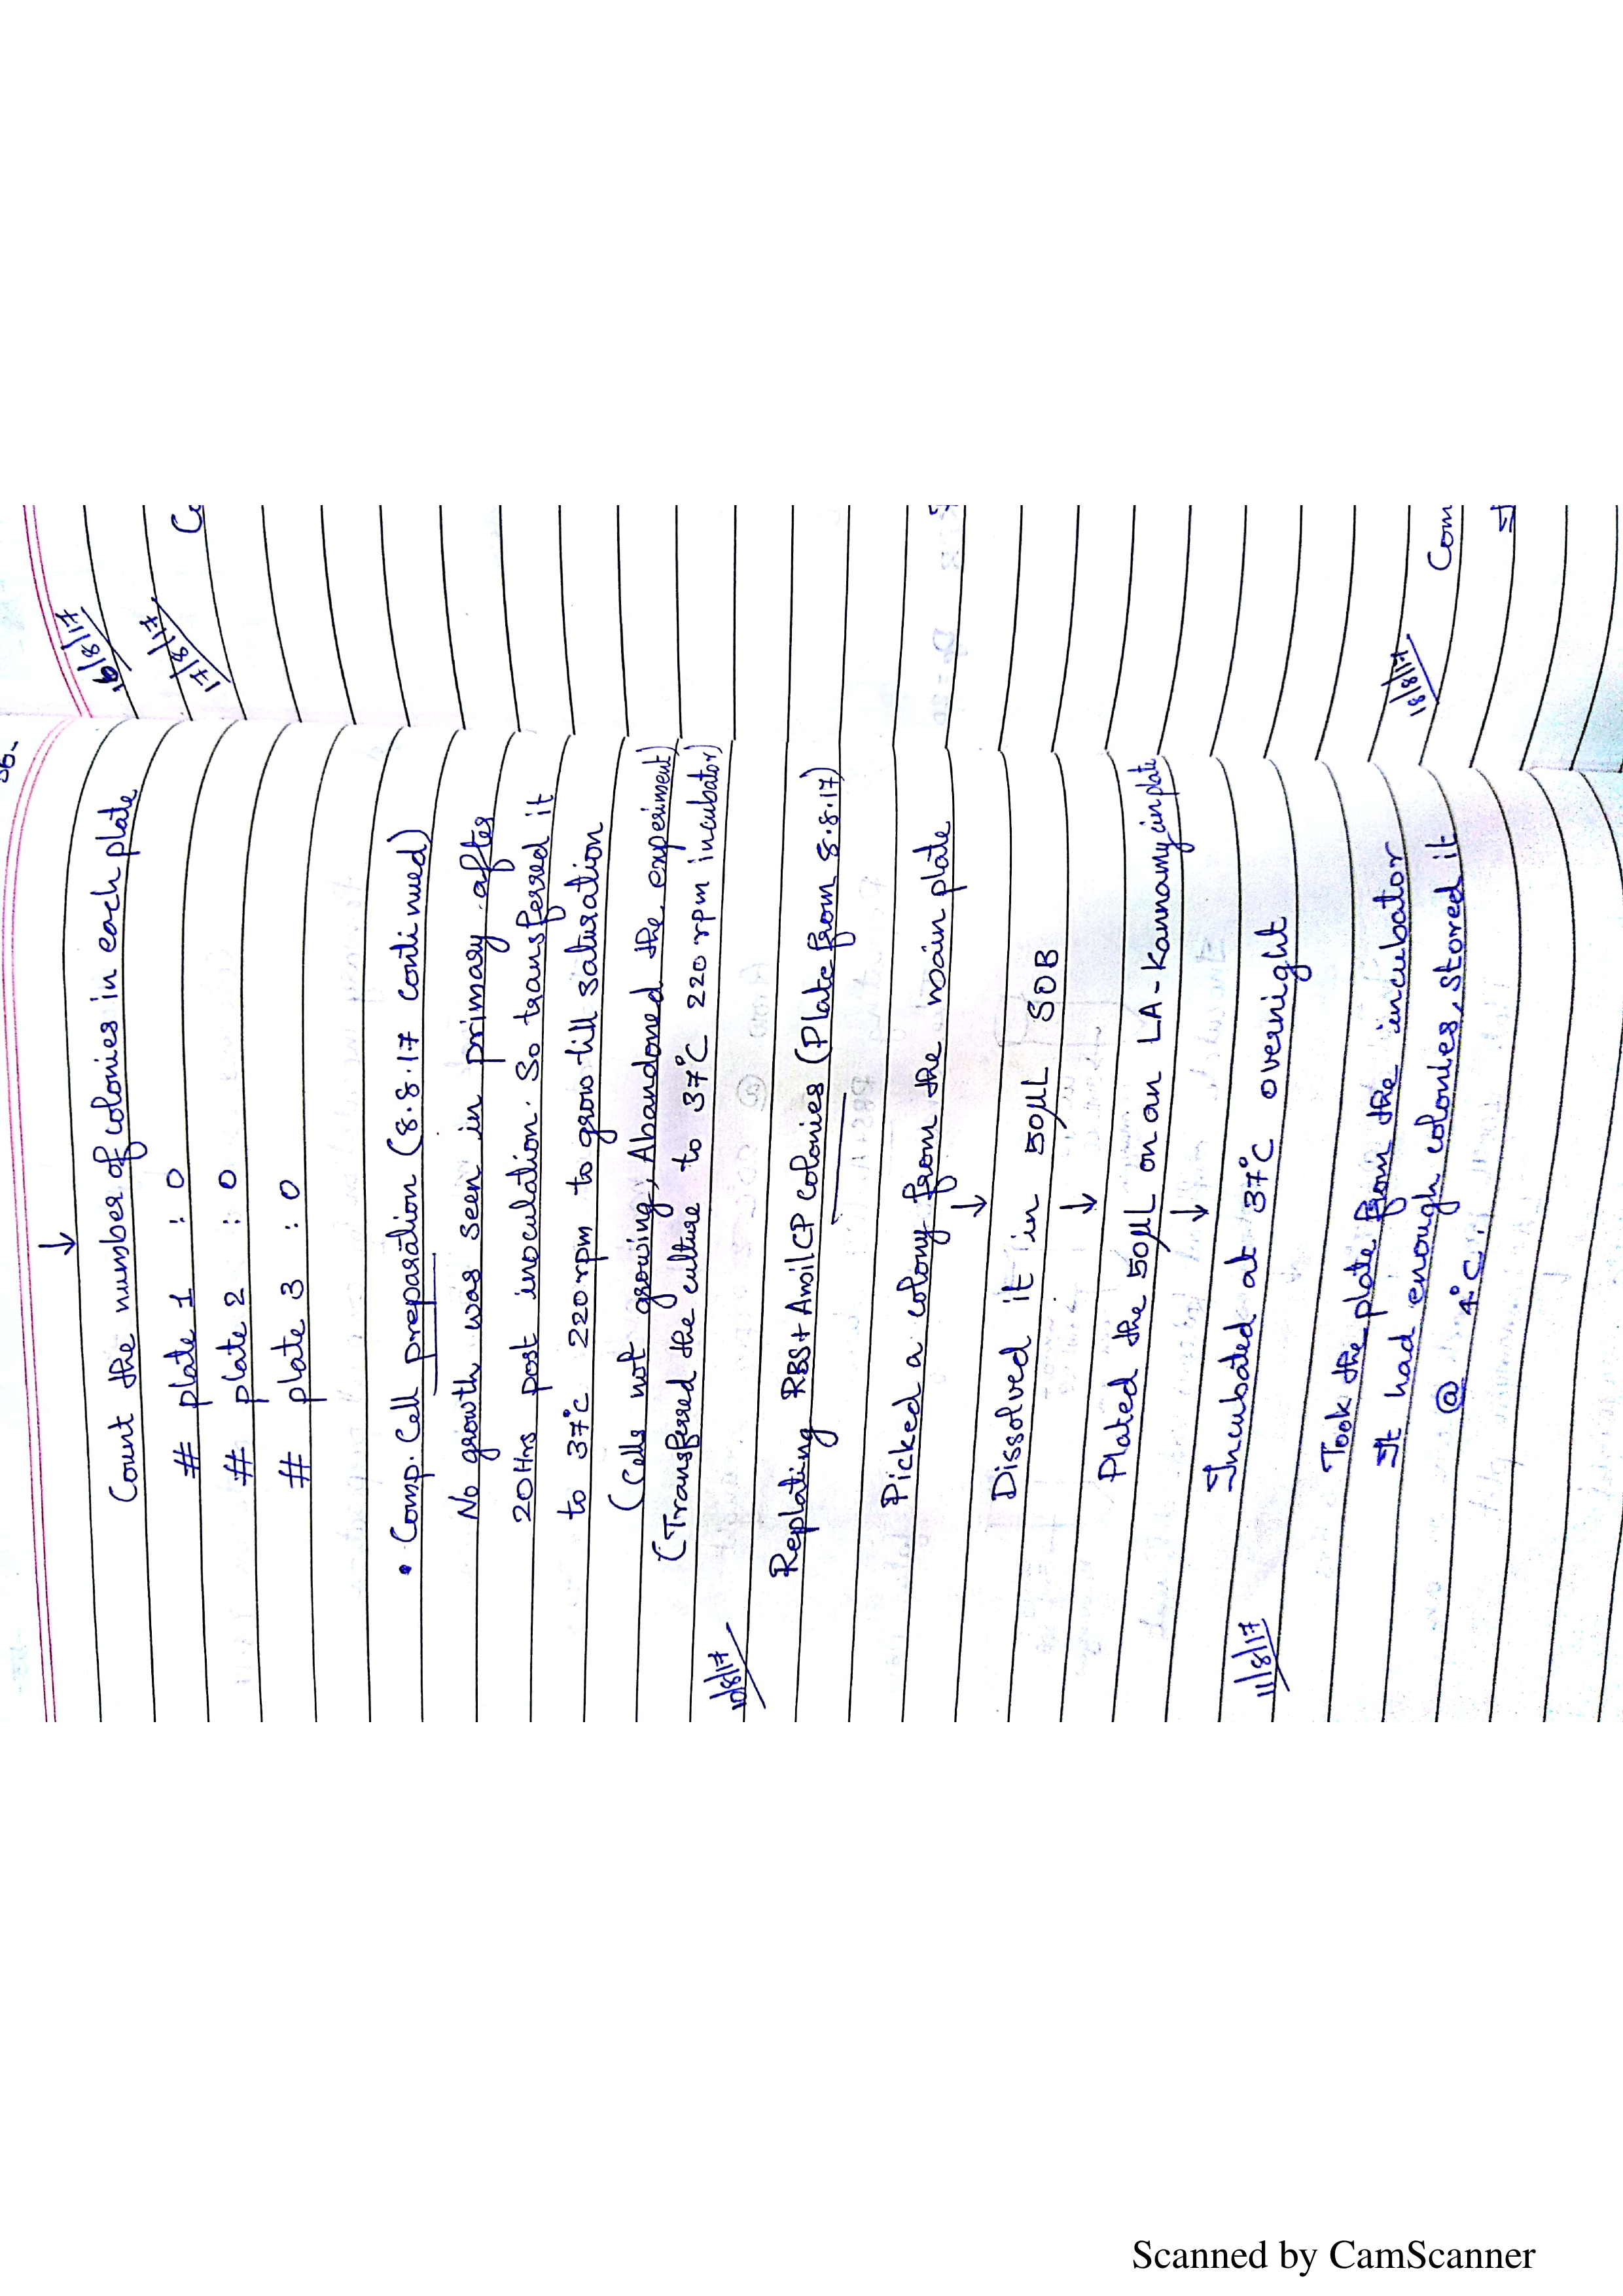 ↓
Count the number of colonies in each plate
# plate 1 : 0
# plate 2 : 0
# plate 3 : 0
• Comp. Cell preparation (8.8.17 continued)
No growth was seen in primary after
20Hrs post inoculation. So transferred it
to 37°C 220 rpm to grow till saturation
(Cells not growing, Abandoned the experiment)
(Transferred the culture to 37°C 220 rpm incubator)
10/8/17
Replating RBS+AmilCP colonies (Plate from 8.8.17)
Picked a colony from the main plate
↓
Dissolved it in 50µL SOB
↓
Plated the 50µL on an LA-Kannamycin plate
↓
Incubated at 37°C overnight
11/8/17
Took the plate from the incubator
It had enough colonies, stored it
@ 4°C.
16/8/17
17/8/17
18/8/17
Com
Scanned by CamScanner